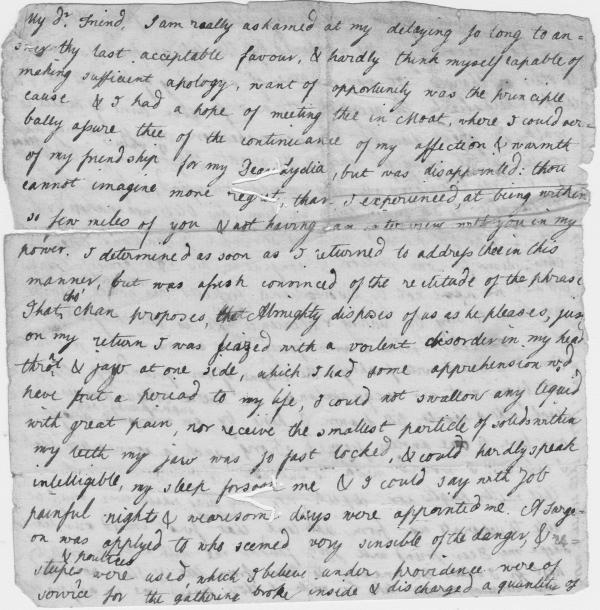 My dr. Friend, I am really ashamed at my delaying so long to an=
swer thy last acceptable favour, & hardly think myself capable of
making sufficient apology, want of opportunity was the principle
cause & I had a hope of meeting thee in Moat, where I could ver
bally assure thee of the continuance of my affection & warmth
of my friendship for my Dear Lydia, but was disappointed: thou
cannot imagine more regret, than I experienced, at being within
so few miles of you & not having an interview with you in my
power. I determined as soon as I returned to address thee in this
manner, but was afresh convinced of the rectitude of the phrase
That, tho' Man proposes, the Almighty disposes of us as he pleases, just
on my return I was seazed with a voilent disorder in my head
throt & jaw at one side, which I had some apprehension wod
have put a period to my life, I could not swallow any liquid
with great pain, nor receive the smallest particle of solids within
my teeth my jaw was so fast locked, & could hardly speak
intelligible, my sleep forsook me & I could say with Job
painful nights & wearisom days were appointed me. A Surge-
on was applyed to who seemed very sensible of the danger, &
stupes & poultices were used, which I believe under providence were of
service for the gathering broke inside & discharged a quantity of